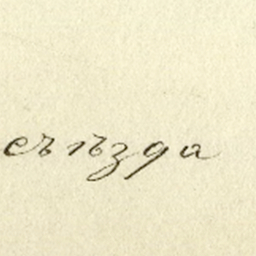 съѣзда